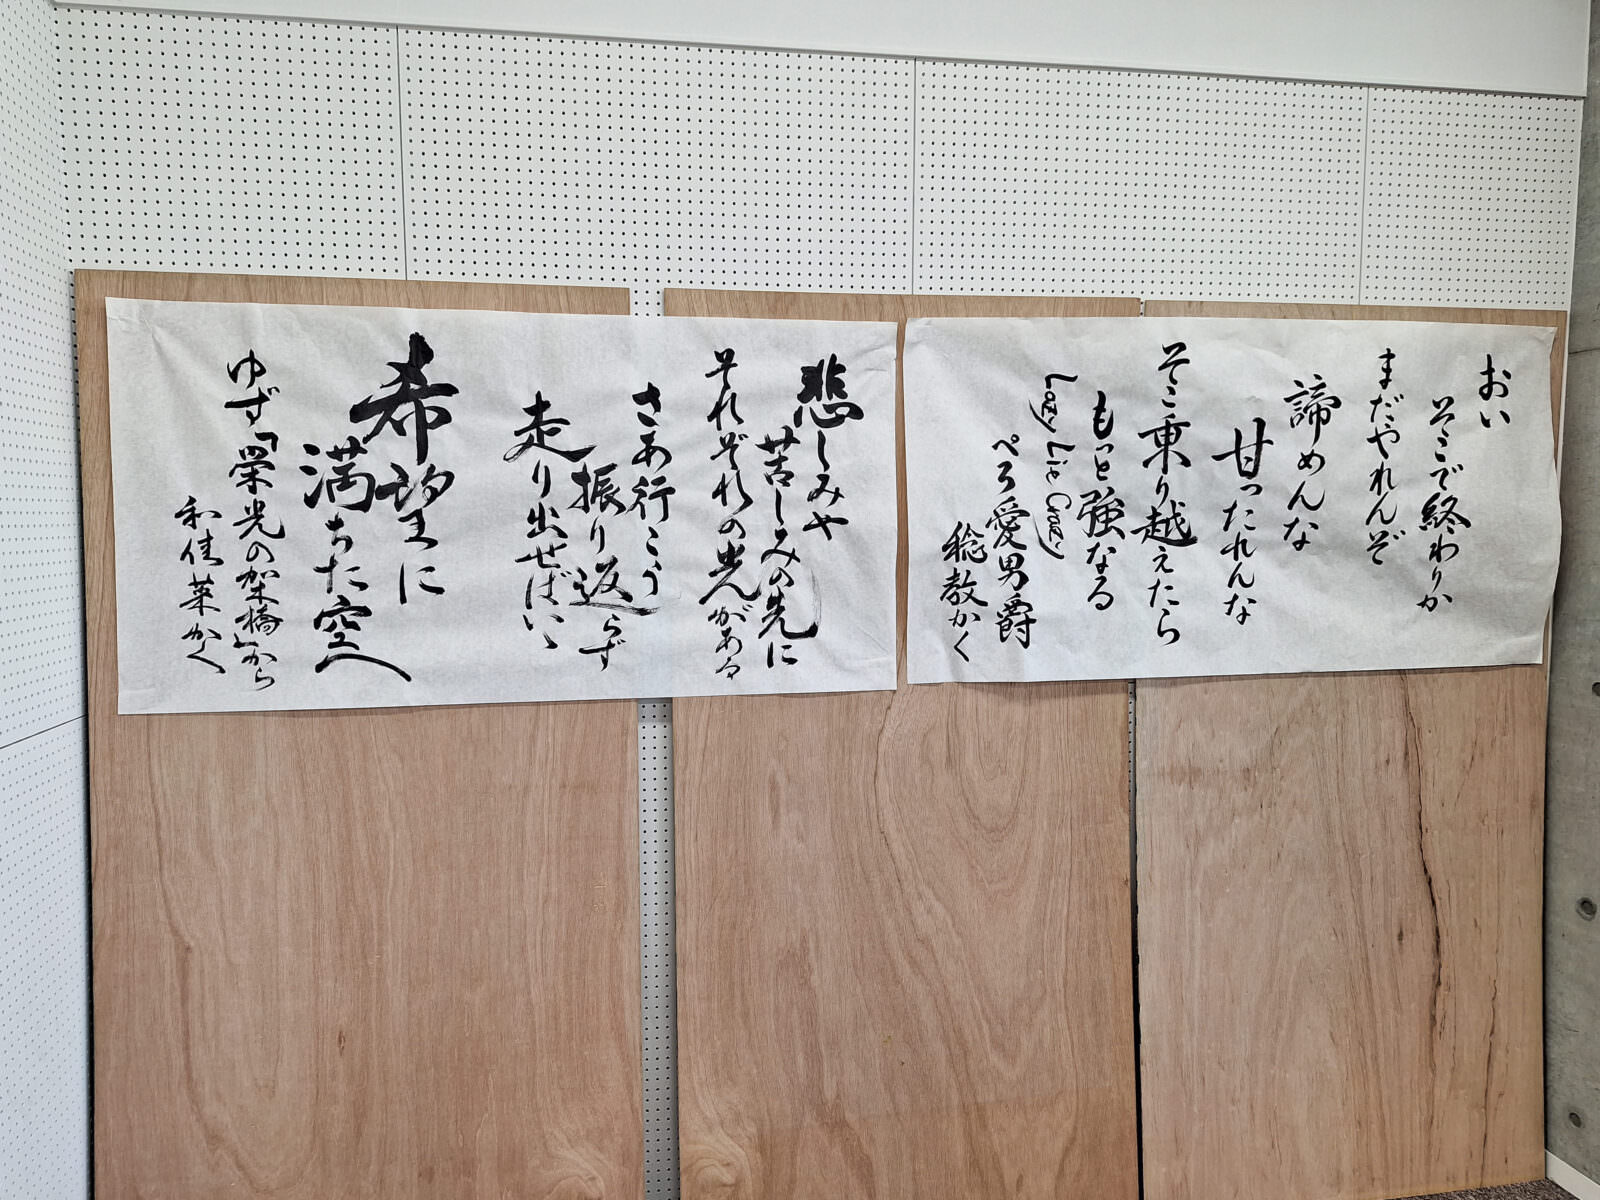 おい
そこで終わりか
まだやれんぞ
諦めんな
甘ったれんな
そこ乗り越えたら
もっと強なる
Lazy Lie Crazy
ぺろ愛男爵
稔教かく
悲しみや
苦しみの先に
それぞれの光がある
さあ行こう
振り返らず
走り出せばいい
希望に
満ちた空へ
ゆず「栄光の架橋」から
和佳菜かく